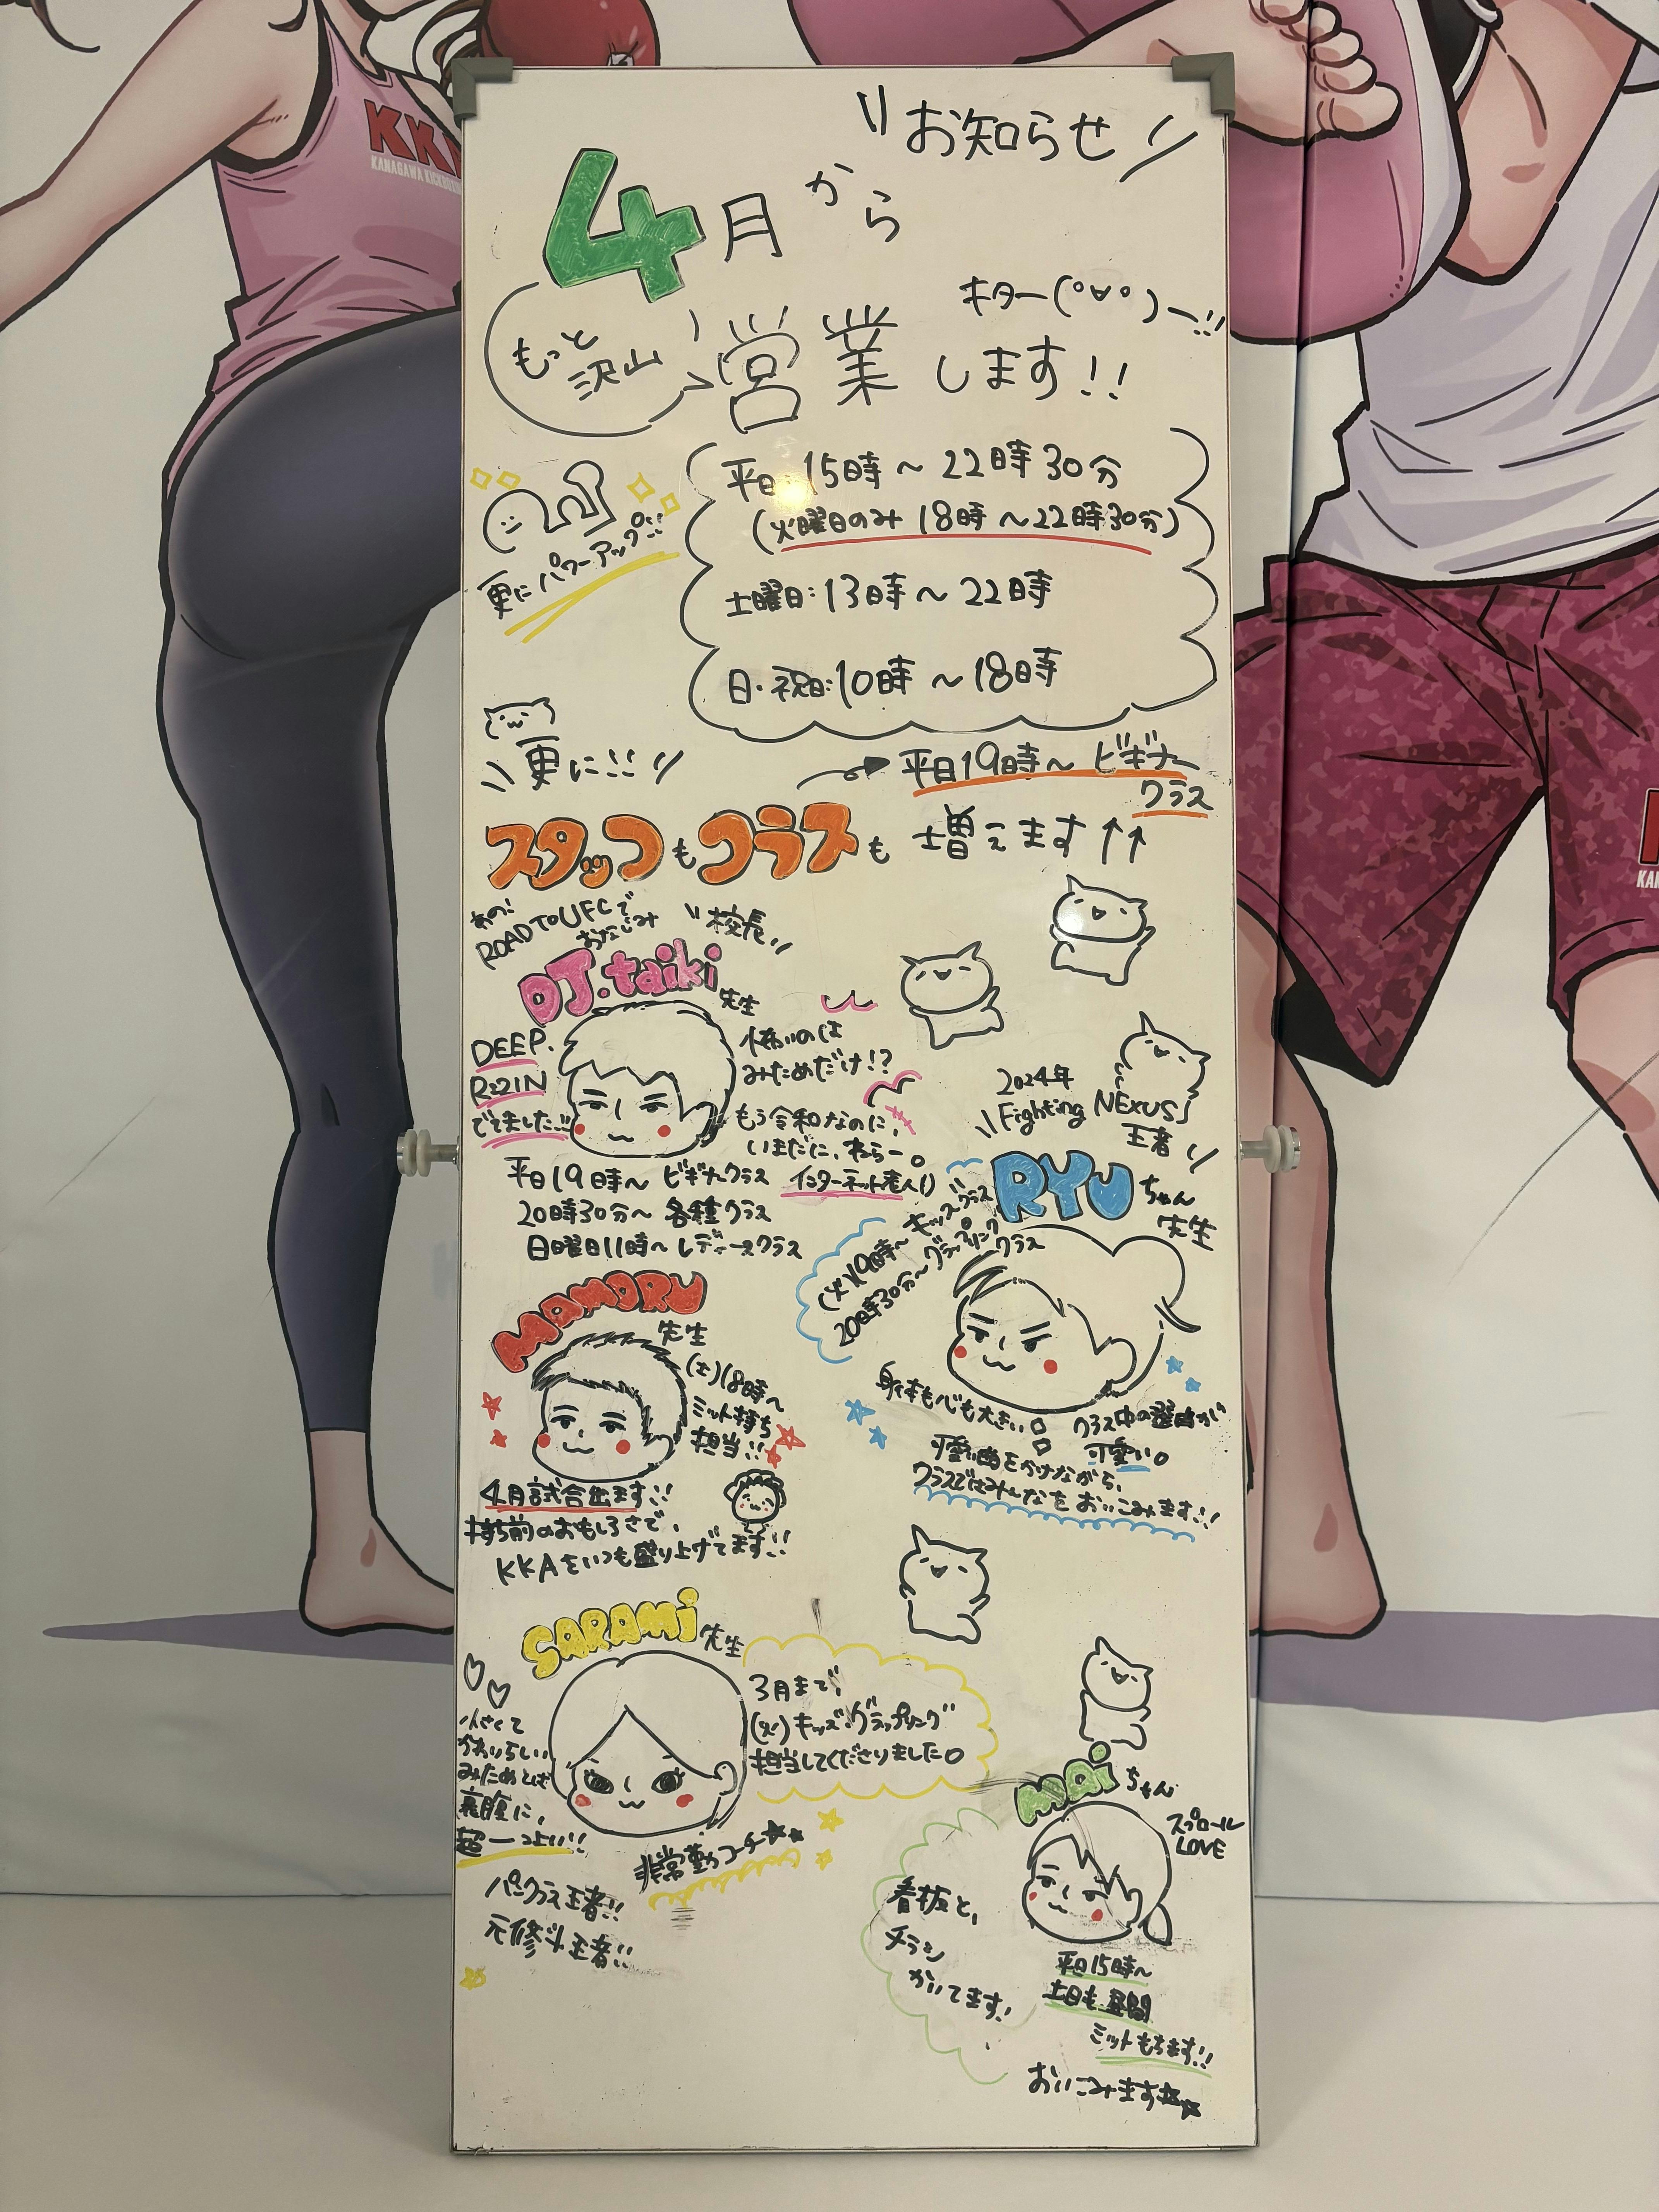 KKA
KANAGAWA KICKBOXING
お知らせ
4月から
キター(°∀°)ー!!
もっと沢山
営業します!!
平日 15時～22時30分
(火曜日のみ 18時～22時30分)
土曜日:13時～22時
日・祝日:10時～18時
更にパワーアップ!!
更に!!
平日19時～ビギナー
クラス
スタッフもクラスも増えます↑↑
あの!
ROAD TO UFCで
おなじみ
校長
DJ.taiki先生
DEEP.
RIZIN
でてました!!
怖いのは
みためだけ!?
もう令和なのに、
いまだに、わらー。
インターネット老人
平日19時～ ビギナークラス
20時30分～ 各種クラス
日曜日11時～ レディースクラス
2024年
Fighting NEXUS
王者
RYUちゃん先生
(火)19時～キッズクラス
20時30分～グラップリングクラス
身体も心も大きい。
クラス中の選曲が
可愛い。
可愛い曲をかけながら、
クラスではみんなをおいこみます!!
MAMORU先生
(土)18時～
ミット持ち
担当!!
4月試合出ます!!
持ち前のおもしろさで、
KKAをいつも盛り上げてます!!
SARAMI先生
小さくて
かわいらしい
みためとは
裏腹に、
超ーつよい!!
3月まで、
(火)キッズ・グラップリング
担当してくださりました。
非常勤コーチ★★
パンクラス王者!!
元修斗王者!!
maiちゃん
スプロール
LOVE
看板と、
チラシ
かいてます!
平日15時～
土日も昼間
ミットもちます!!
おいこみます☆★